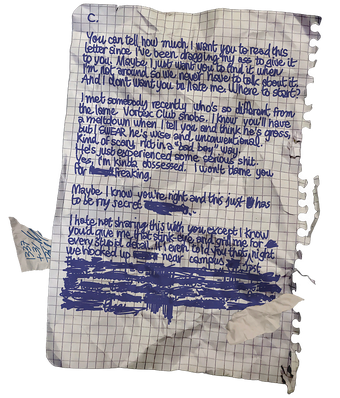 C.
You can tell how much I want you to read this
letter since I've been dragging my ass to give it
to you. Maybe I just want you to find it when
I'm not around so we never have to talk about it.
And I don't want you to hate me. Where to start?
I met somebody recently who's so different from
the lame Vortex Club snobs. I know you'll have
a meltdown when I tell you and think he's gross,
but I SWEAR he's wise and unconventional.
Kind of scary, not in a "bad boy" way.
He's just experienced some serious shit.
Yes, I'm kinda obsessed. I won't blame you
for freaking.
Maybe I know you're right and this just has
to be my secret
I hate not sharing this with you except I know
you'd give me that stink-eye and grill me for
every stupid detail. If I even told you that night
we hooked up near campus just